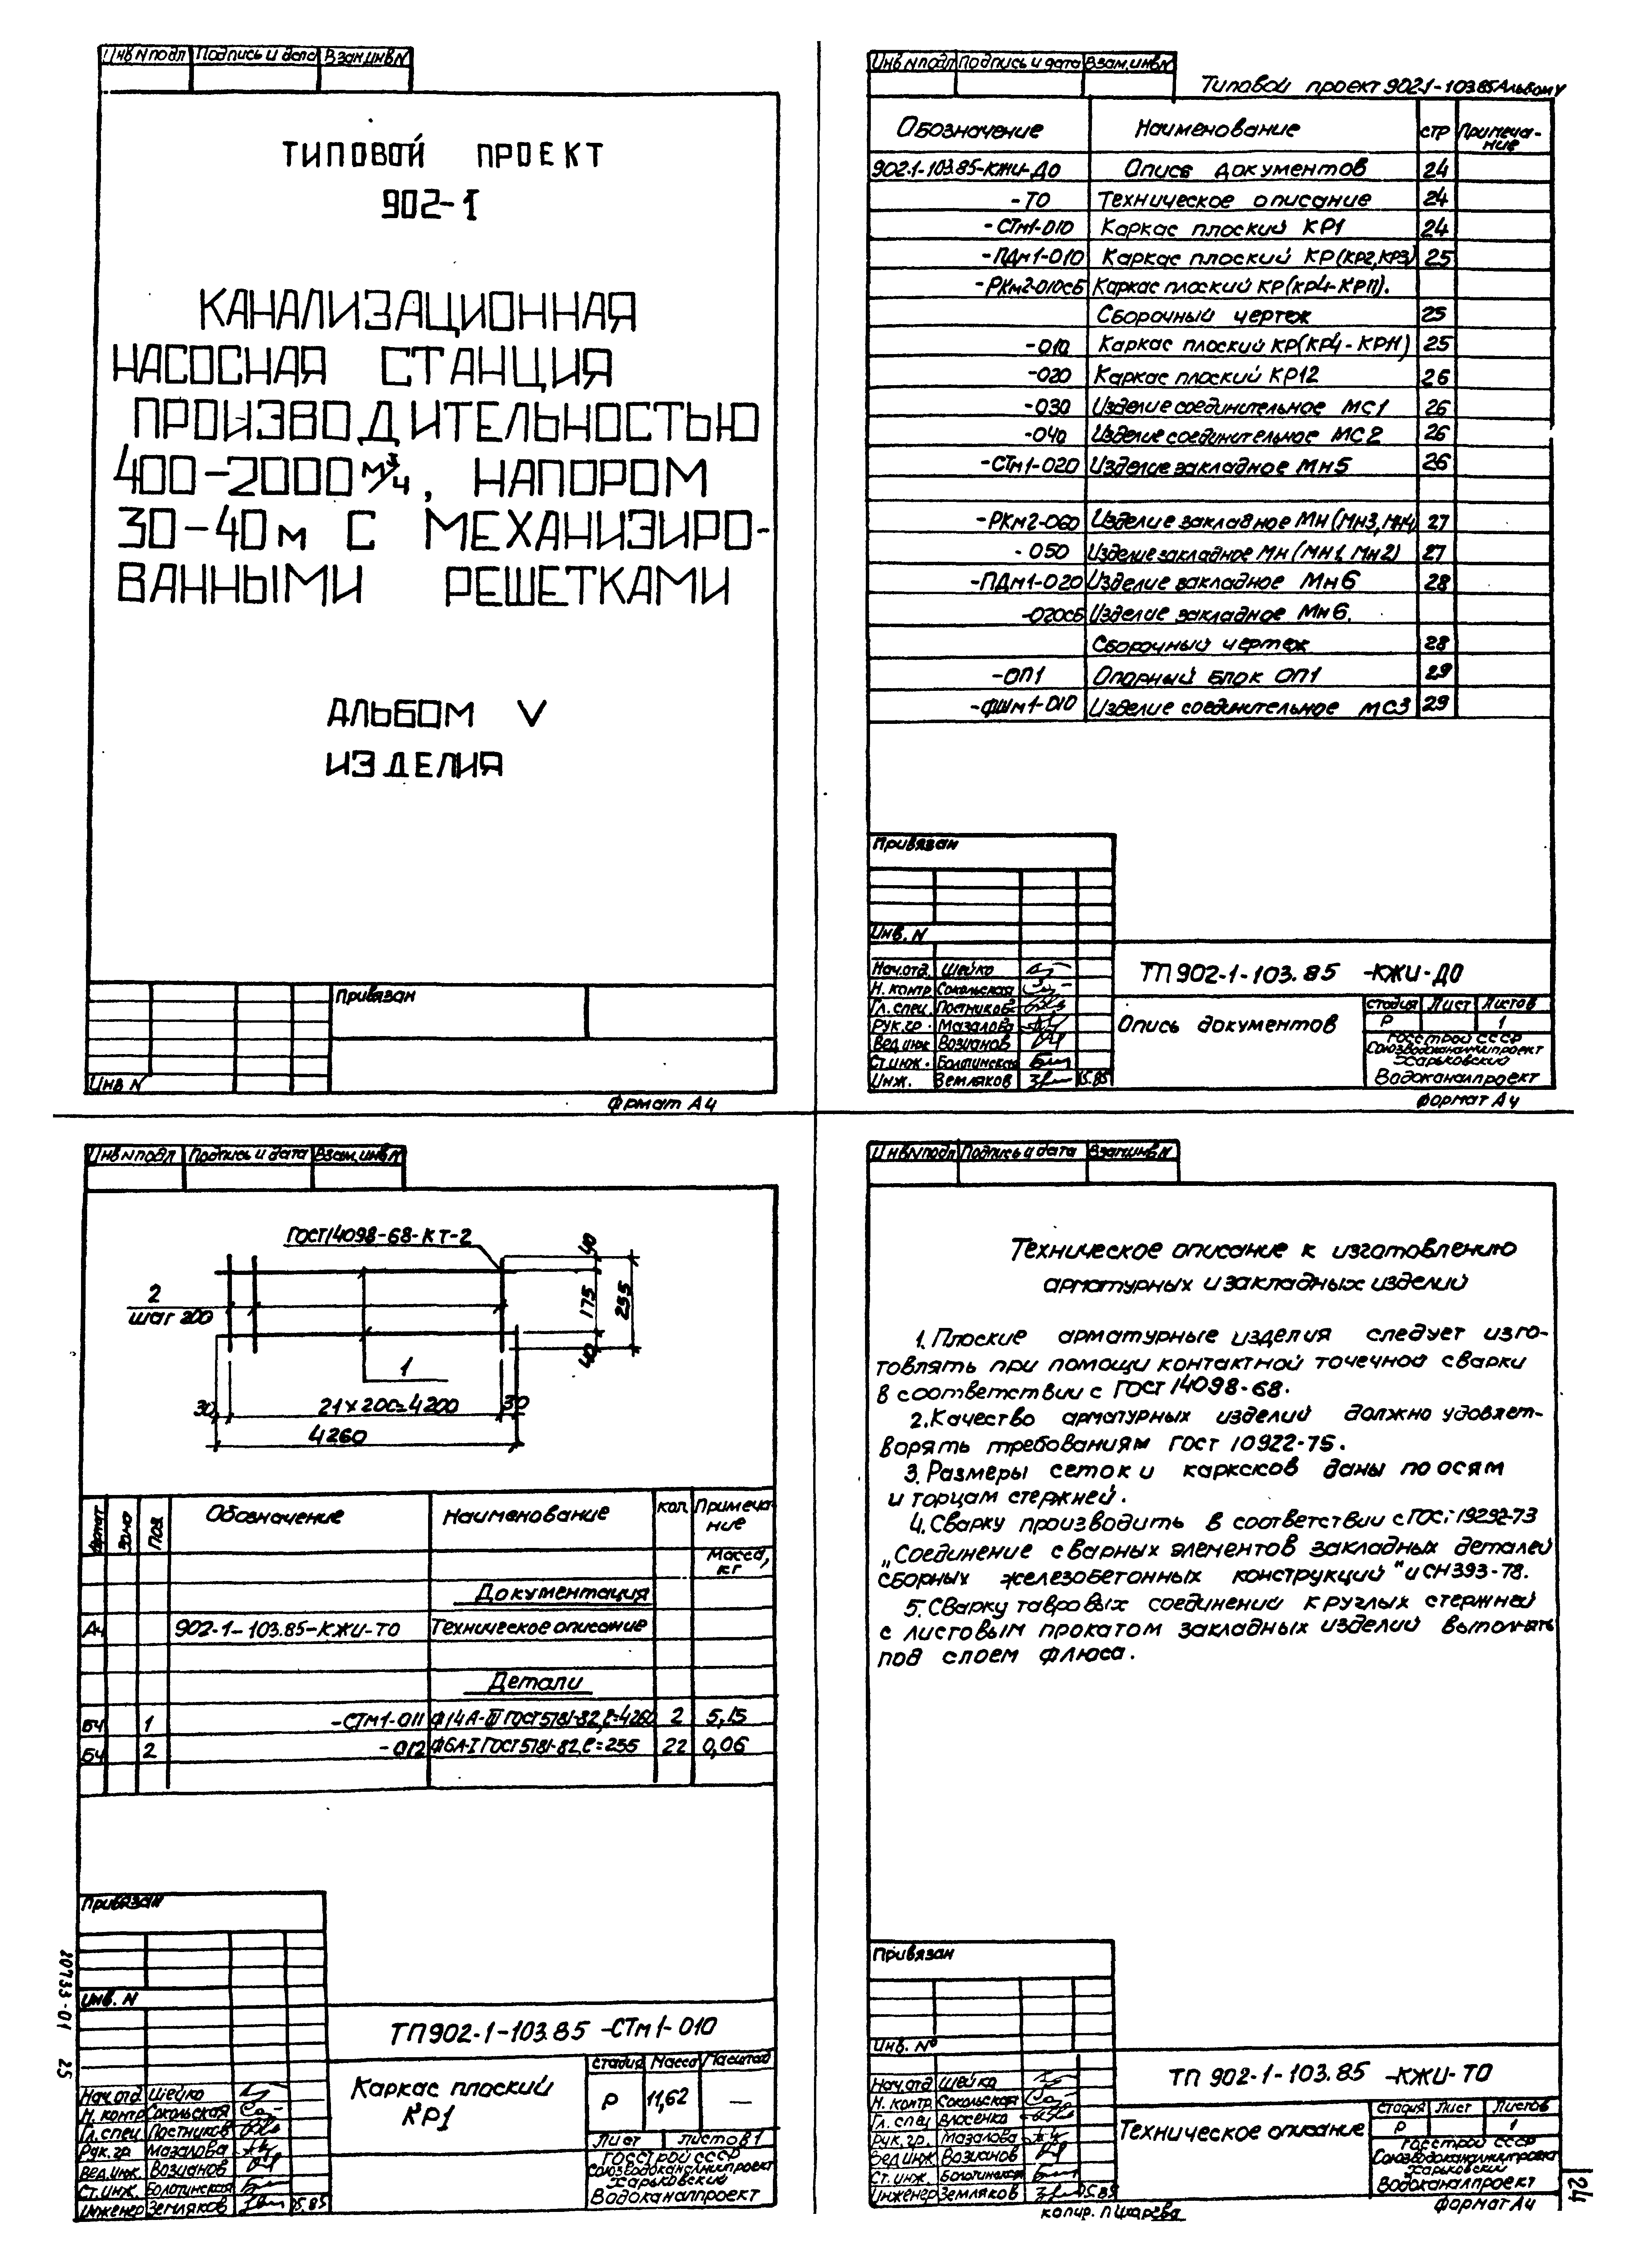 Инв N подл Подпись и дата Взам.инв N
ТИПОВОЙ ПРОЕКТ
902-1
КАНАЛИЗАЦИОННАЯ
НАСОСНАЯ СТАНЦИЯ
ПРОИЗВОДИТЕЛЬНОСТЬЮ
400-2000 м³/ч, НАПОРОМ
30-40м С МЕХАНИЗИРО-
ВАННЫМИ РЕШЕТКАМИ
АЛЬБОМ V
ИЗДЕЛИЯ
Привязан
Инв N
Формат А4
Инв N подл Подпись и дата Взам.инв N
Типовой проект 902-1-103.85 Альбом V
Обозначение Наименование стр Примеча-
ние
902.1-103.85-КЖИ-ДО Опись документов 24
-ТО Техническое описание 24
-СТм1-010 Каркас плоский КР1 24
-ПДм1-010 Каркас плоский КР(КР2,КР3) 25
-РКм2-010СБ Каркас плоский КР(КР4-КР11).
Сборочный чертеж 25
-010 Каркас плоский КР(КР4-КР11) 25
-020 Каркас плоский КР12 26
-030 Изделие соединительное МС1 26
-040 Изделие соединительное МС2 26
-СТм1-020 Изделие закладное Мн5 26
-РКм2-060 Изделие закладное Мн(Мн3,Мн4) 27
-050 Изделие закладное Мн (Мн1, Мн2) 27
-ПДм1-020 Изделие закладное Мн6 28
-020СБ Изделие закладное Мн6.
Сборочный чертеж 28
-ОП1 Опорный блок ОП1 29
-ФШм1-010 Изделие соединительное МС3 29
Привязан
Инв. N
Нач.отд. Шейко
Н. контр Сокольская
Гл. спец. Постников
Рук.гр. Мазалова
Вед.инж Возианов
Ст.инж. Болотинская
Инж. Земляков 5.85
ТП 902-1-103.85 -КЖИ-ДО
Опись документов
стадия Лист Листов
Р 1
Госстрой СССР
Союзводоканалниипроект
Харьковский
Водоканалпроект
Формат А4
Инв N подл Подпись и дата Взам.инв N
ГОСТ14098-68-КТ-2
2
шаг 200
1
40
175
255
40
30 21х200=4200 30
4260
Формат Зона Поз. Обозначение Наименование кол. Примеча-
ние
Масса,
кг
Документация
А4 902-1-103.85-КЖИ-ТО Техническое описание
Детали
БЧ 1 -СТм1-011 Ф14А-III ГОСТ5781-82,ℓ=4260 2 5,15
БЧ 2 -012 Ф6А-I ГОСТ5781-82,ℓ=255 22 0,06
Привязан
Инв. N
20733-01 25
Нач.отд Шейко
Н. контр Сокольская
Гл. спец Постников
Рук. гр. Мазалова
Вед.инж. Возианов
Ст.инж. Болотинская
Инженер Земляков 5.85
ТП902-1-103.85 -СТм1-010
Каркас плоский
КР1
Стадия Масса Масштаб
Р 11,62 —
Лист Листов 1
Госстрой СССР
Союзводоканалниипроект
Харьковский
Водоканалпроект
Инв N подл Подпись и дата Взам.инв N
Техническое описание к изготовлению
арматурных и закладных изделий
1. Плоские арматурные изделия следует изго-
товлять при помощи контактной точечной сварки
в соответствии с ГОСТ 14098-68.
2. Качество арматурных изделий должно удовлет-
ворять требованиям ГОСТ 10922-75.
3. Размеры сеток и каркасов даны по осям
и торцам стержней.
4. Сварку производить в соответствии с ГОСТ 19292-73
„Соединение сварных элементов закладных деталей
сборных железобетонных конструкций" и СН393-78.
5. Сварку тавровых соединений круглых стержней
с листовым прокатом закладных изделий выполнять
под слоем флюса.
Привязан
Инв. №
Нач.отд Шейко
Н. контр Сокольская
Гл. спец Власенко
Рук. гр. Мазалова
Вед инж Возианов
Ст. инж. Болотинская
Инженер Земляков 5.85
ТП 902-1-103.85 -КЖИ-ТО
Техническое описание
Стадия Лист Листов
Р 1
Госстрой СССР
Союзводоканалниипроект
Харьковский
Водоканалпроект
Формат А4
копир. Пшарева
24